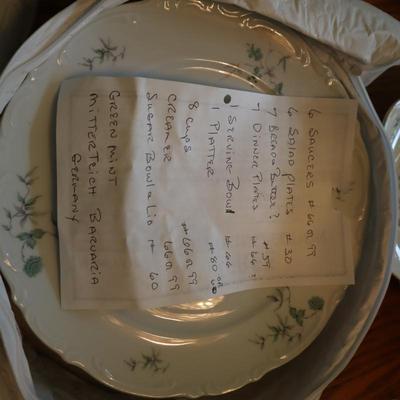 6 SAUCERS # 66 or 99
6 SALAD PLATES # 30
7 BREAD & BUTTER? # 39
7 DINNER PLATES # 66
1 SERVING BOWL # 66
1 PLATTER # 80
8 CUPS # 66 or 99
CREAMER # 66 or 99
SUGAR BOWL & LID # 60
GREEN MINT
MITTERTEICH BARVARIA
GERMANY